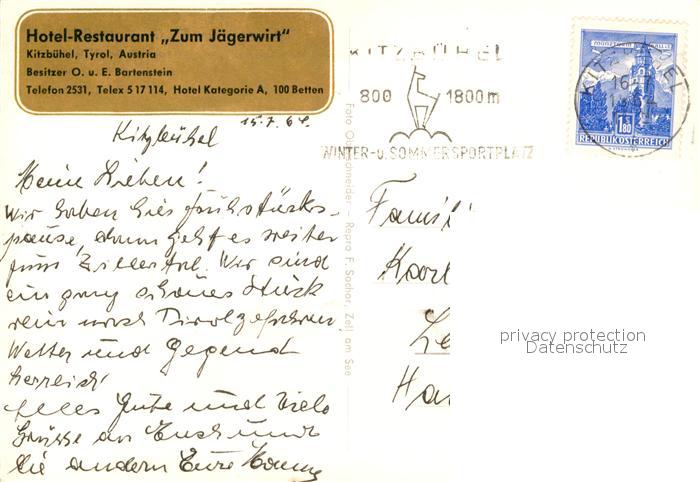 Hotel-Restaurant „Zum Jägerwirt"
Kitzbühel, Tyrol, Austria
Besitzer O. u. E. Bartenstein
Telefon 2531, Telex 5 17 114, Hotel Kategorie A, 100 Betten
15.7.64.
Kitzbühel
Meine Lieben!
Wir haben hier Frühstücks-
pause, dann geht es weiter
zum Zillertal. Wir sind
ein ganz schönes Stück
rein nach Tirol gefahren
Wetter und Gegend
herrlich!
Alles Gute und viele
Grüsse an Euch und
die andern Eure
KITZBÜHEL
800 1800m
WINTER-u. SOMMERSPORTPLATZ
KITZBÜHEL
1.80
REPUBLIK ÖSTERREICH
Repro F. Sochor, Zell am See
Famil
Karl
Le
Ha
privacy protection
Datenschutz